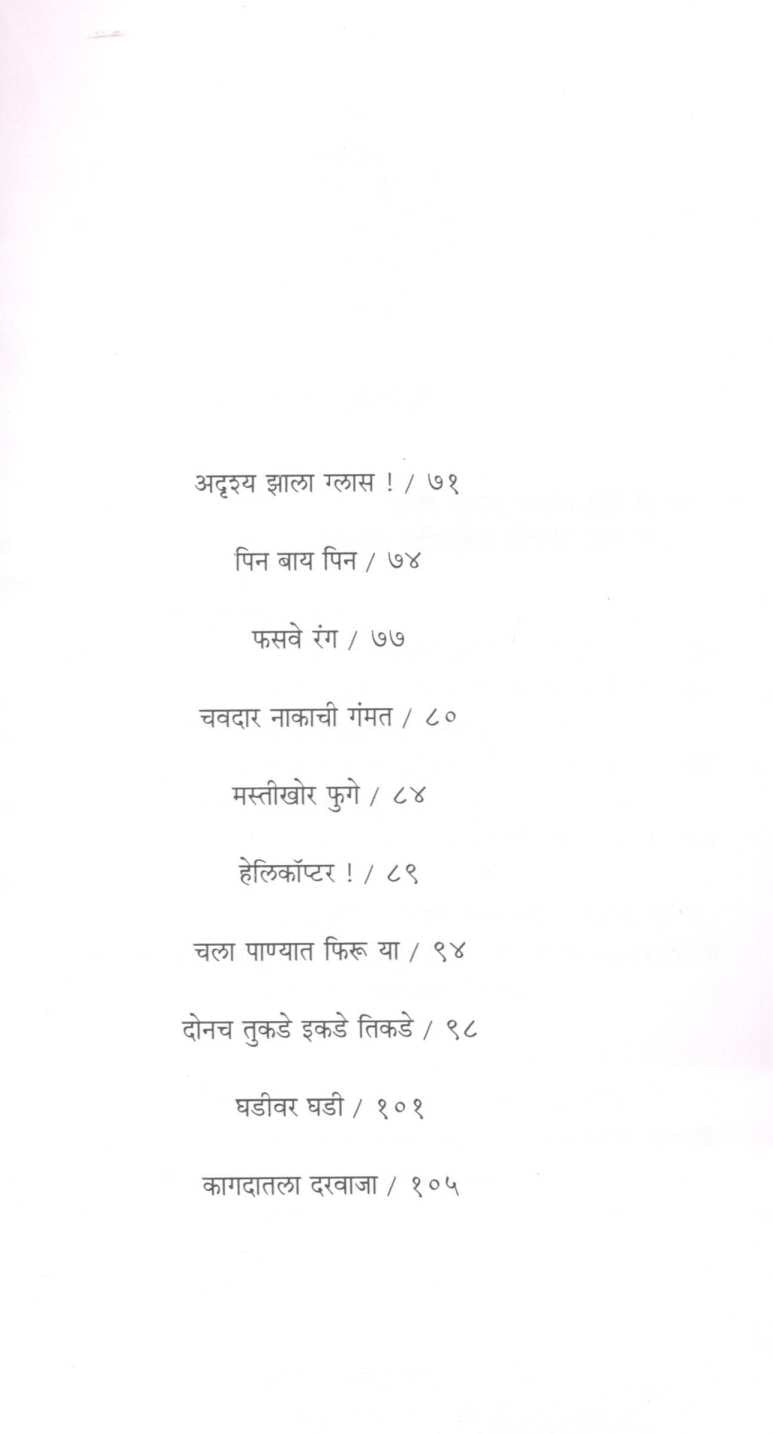 अदृश्य झाला ग्लास ! / ७१
पिन बाय पिन / ७४
फसवे रंग / ७७
चवदार नाकाची गंमत / ८०
मस्तीखोर फुगे / ८४
हेलिकॉप्टर ! / ८९
चला पाण्यात फिरू या / ९४
दोनच तुकडे इकडे तिकडे / ९८
घडीवर घडी / १०१
कागदातला दरवाजा / १०५